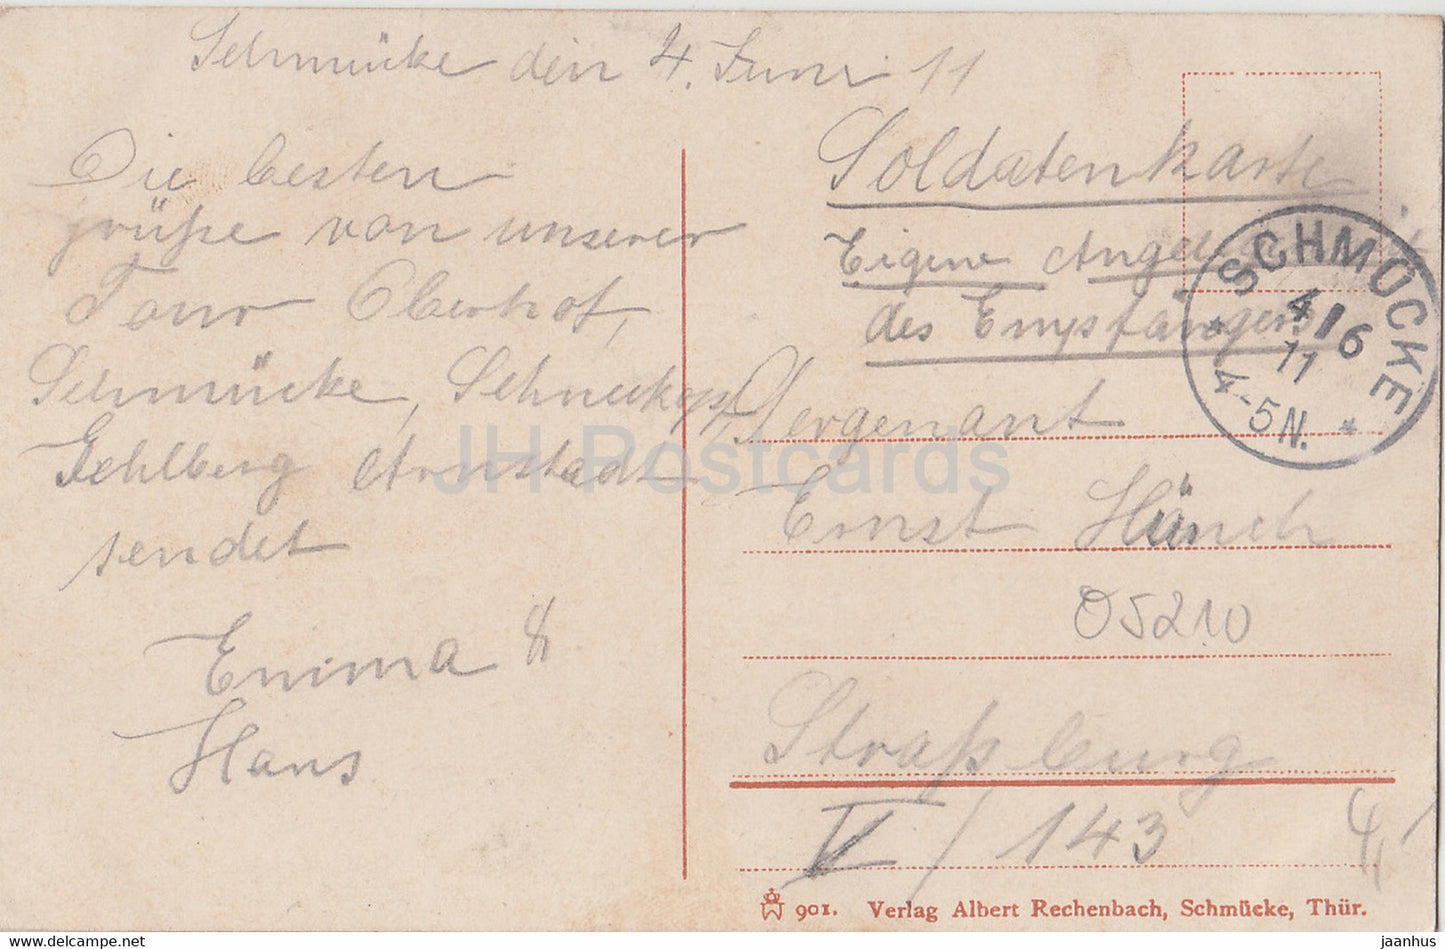 Schmücke den 4. Juni 11
Die besten
grüße von unserer
Tour Oberhof,
Schmücke, Schneekopf,
Gehlberg Arnstadt
sendet
Emma &
Hans
Soldatenkarte
Eigene Angelegenheit
des Empfängers
Sergenant
Ernst Hänch
05210
Straßburg
V / 143
SCHMÜCKE
4/6
11
* 4-5N. *
901. Verlag Albert Rechenbach, Schmücke, Thür.
JH Postcards
jaanhus